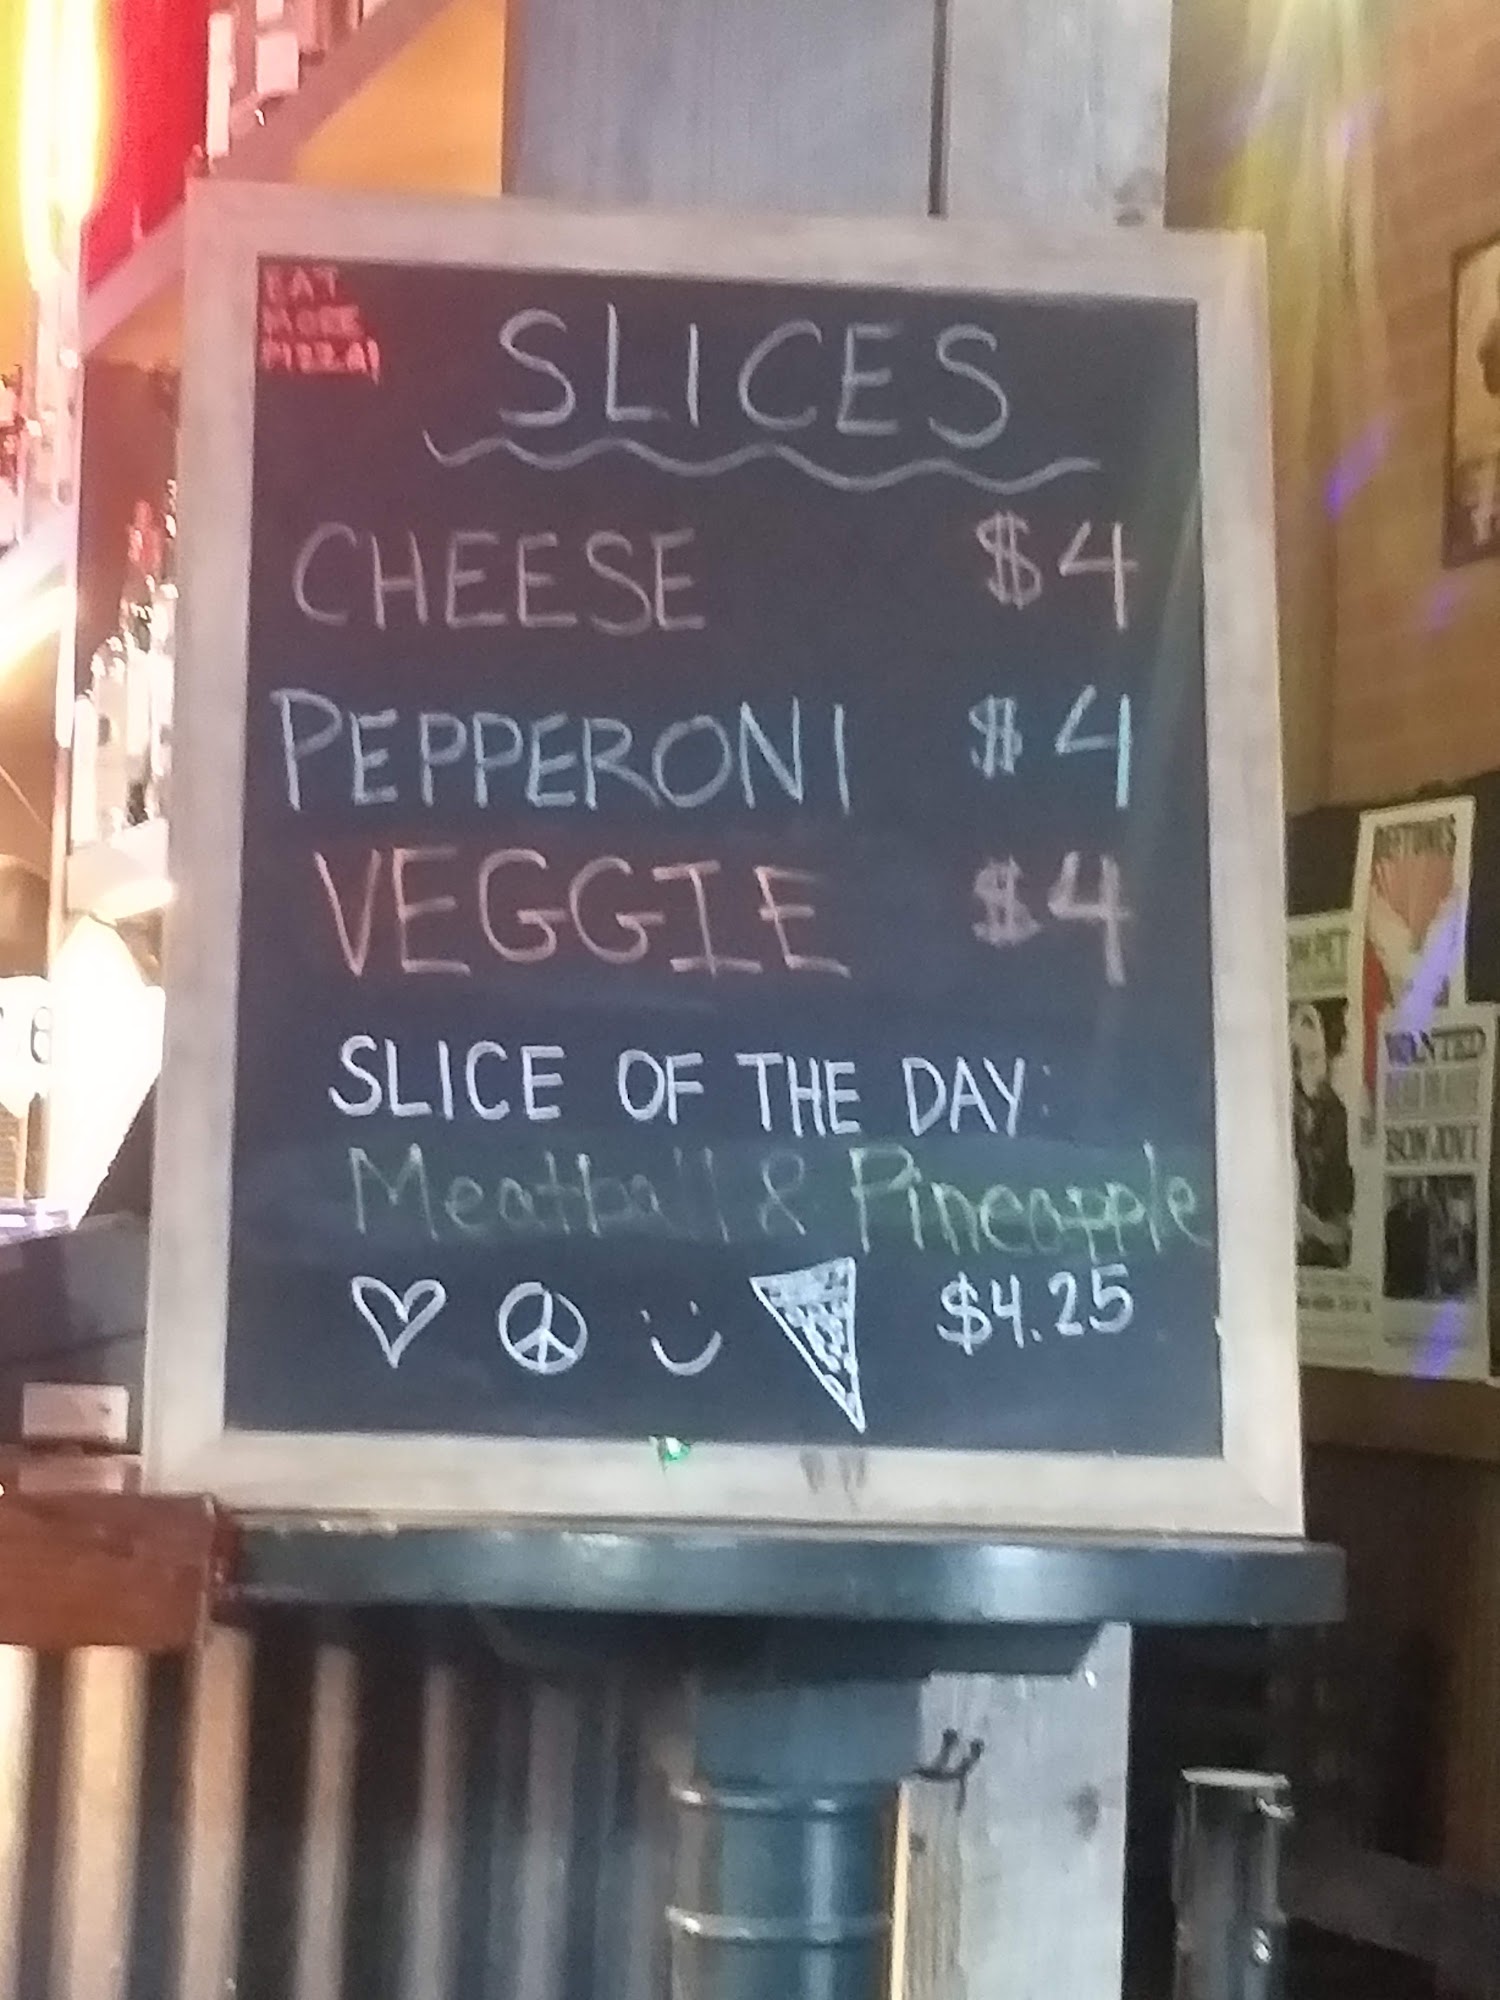 EAT
MORE
PIZZA!
SLICES
CHEESE $4
PEPPERONI $4
VEGGIE $4
SLICE OF THE DAY:
Meatball & Pineapple
$4.25
DEFTONES
WANTED
BON JOVI